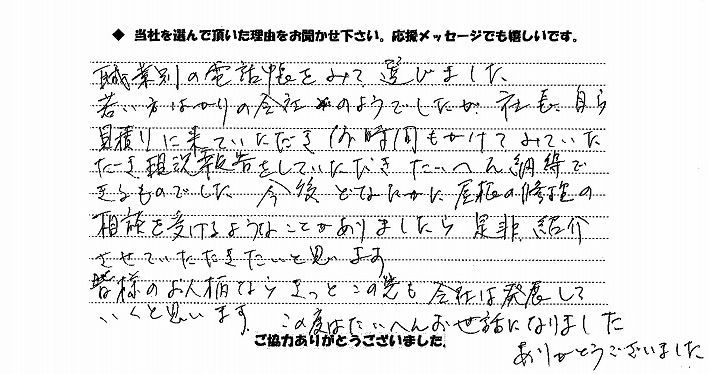 ◆ 当社を選んで頂いた理由をお聞かせ下さい。応援メッセージでも嬉しいです。
職業別の電話帳をみて選びました
若い方ばかりの会社のようでしたが 社長自ら
見積りに来ていただき 時間もかけてみていた
だき 報告をしていただき たいへん納得で
きるものでした 今後どなたかに屋根の修理の
相談を受けるようなことがありましたら是非紹介
させていただきたいと思います
皆様のお人柄ならきっとこの先も会社は発展して
いくと思います。この度はたいへんお世話になりました
ご協力ありがとうございました。
ありがとうございました